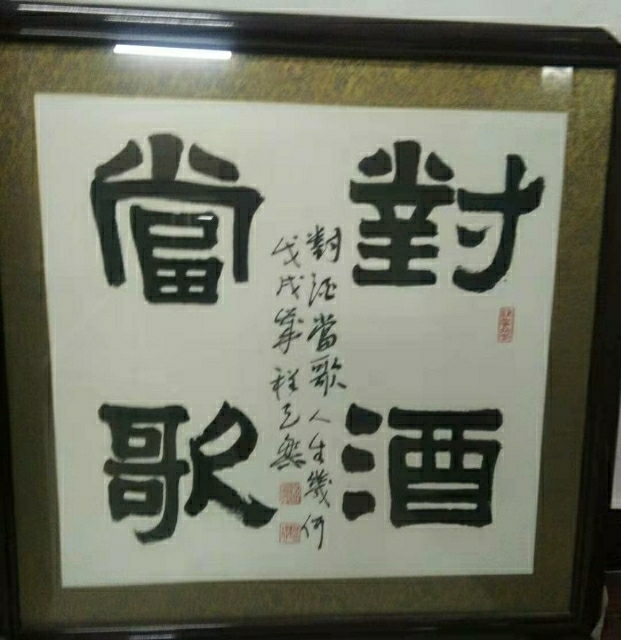 對酒
當歌
對酒當歌人生幾何
戊戌歲程